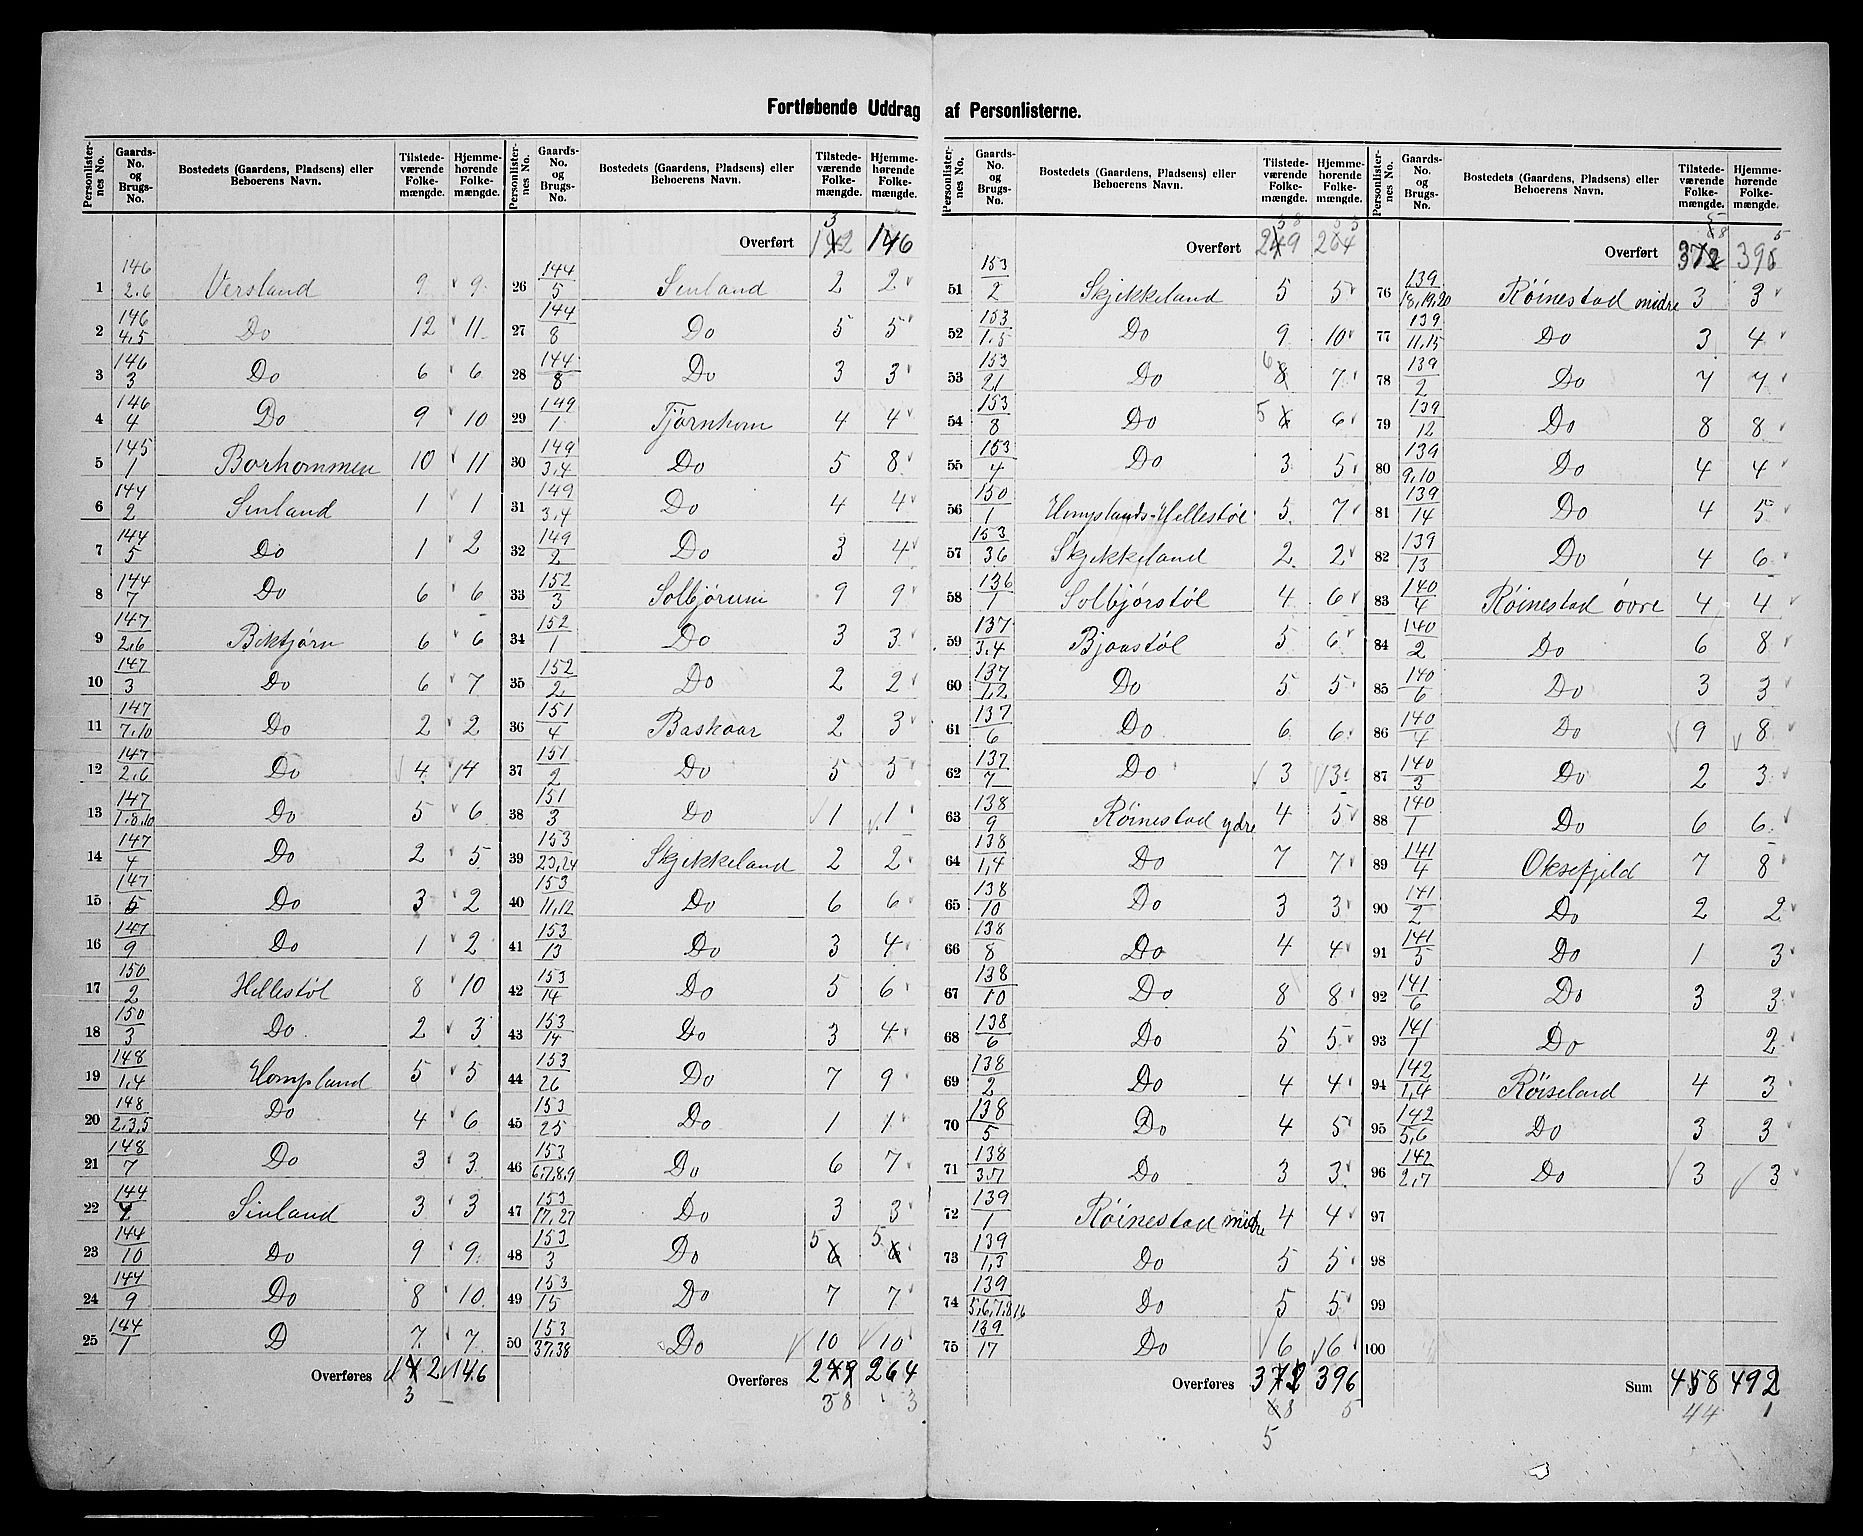 Fortløbende Uddrag af Personlisterne.
Personlisternes No. | Gaards-No. og Brugs-No. | Bostedets (Gaardens, Pladsens) eller Beboerens Navn. | Tilstedeværende Folkemængde. | Hjemmehørende Folkemængde.
1 | 146/2,6 | Versland | 9 | 9
2 | 146/4,5 | Do | 12 | 11
3 | 146/3 | Do | 6 | 6
4 | 146/4 | Do | 9 | 10
5 | 145/1 | Borhommen | 10 | 11
6 | 144/2 | Sinland | 1 | 1
7 | 144/5 | Do | 1 | 2
8 | 144/7 | Do | 6 | 6
9 | 147/2,6 | Biktjørn | 6 | 6
10 | 147/3 | Do | 6 | 7
11 | 147/7,10 | Do | 2 | 2
12 | 147/2,6 | Do | 4 | 4
13 | 147/1,8,10 | Do | 5 | 6
14 | 147/4 | Do | 2 | 5
15 | 147/5 | Do | 3 | 2
16 | 147/9 | Do | 1 | 2
17 | 150/2 | Hellestøl | 8 | 10
18 | 150/3 | Do | 2 | 3
19 | 148/1,4 | Homsland | 5 | 5
20 | 148/2,3,5 | Do | 4 | 6
21 | 148/7 | Do | 3 | 3
22 | 144/2 | Sinland | 3 | 3
23 | 144/10 | Do | 9 | 9
24 | 144/9 | Do | 8 | 10
25 | 144/1 | D | 7 | 7
Overføres 142 146
3
Personlisternes No. | Gaards-No. og Brugs-No. | Bostedets (Gaardens, Pladsens) eller Beboerens Navn. | Tilstedeværende Folkemængde. | Hjemmehørende Folkemængde.
3
Overført 142 146
26 | 144/5 | Sinland | 2 | 2
27 | 144/8 | Do | 5 | 5
28 | 144/8 | Do | 3 | 3
29 | 149/1 | Tjørnhom | 4 | 4
30 | 149/3,4 | Do | 5 | 8
31 | 149/3,4 | Do | 4 | 4
32 | 149/2 | Do | 3 | 4
33 | 152/3 | Solbjørum | 9 | 9
34 | 152/1 | Do | 3 | 3
35 | 152/2 | Do | 2 | 2
36 | 151/4 | Baskaar | 2 | 3
37 | 151/2 | Do | 5 | 5
38 | 151/3 | Do | 1 | 1
39 | 153/23,24 | Skjekkeland | 2 | 2
40 | 153/11,12 | Do | 6 | 6
41 | 153/13 | Do | 3 | 4
42 | 153/14 | Do | 5 | 6
43 | 153/14 | Do | 3 | 4
44 | 153/26 | Do | 7 | 9
45 | 153/25 | Do | 1 | 1
46 | 153/6,7,8,9 | Do | 6 | 7
47 | 153/17,27 | Do | 3 | 3
48 | 153/3 | Do | 5 6 | 5 6
49 | 153/15 | Do | 7 | 7
50 | 153/37,38 | Do | 10 | 10
Overføres 249 264
38 3
Personlisternes No. | Gaards-No. og Brugs-No. | Bostedets (Gaardens, Pladsens) eller Beboerens Navn. | Tilstedeværende Folkemængde. | Hjemmehørende Folkemængde.
38 3
Overført 249 264
51 | 153/2 | Skjekkeland | 5 | 5
52 | 153/1,5 | Do | 9 | 10
53 | 153/21 | Do | 6 8 | 7
54 | 153/8 | Do | 5 6 | 6
55 | 153/4 | Do | 3 | 5
56 | 150/1 | Homslands-Hellestøl | 5 | 7
57 | 153/36 | Skjekkeland | 2 | 2
58 | 136/1 | Solbjørstøl | 4 | 6
59 | 137/3,4 | Bjaastøl | 5 | 6
60 | 137/1,2 | Do | 5 | 5
61 | 137/6 | Do | 6 | 6
62 | 137/7 | Do | 3 | 3
63 | 138/9 | Røinestad ydre | 4 | 5
64 | 138/1,4 | Do | 7 | 7
65 | 138/10 | Do | 3 | 3
66 | 138/8 | Do | 4 | 4
67 | 138/10 | Do | 8 | 8
68 | 138/6 | Do | 5 | 5
69 | 138/2 | Do | 4 | 4
70 | 138/5 | Do | 4 | 5
71 | 138/37 | Do | 3 | 3
72 | 139/1 | Røinestad midre | 4 | 4
73 | 139/1,3 | Do | 5 | 5
74 | 139/5,6,7,8,16 | Do | 5 | 5
75 | 139/17 | Do | 6 | 6
Overføres 372 396
68 5
5
Personlisternes No. | Gaards-No. og Brugs-No. | Bostedets (Gaardens, Pladsens) eller Beboerens Navn. | Tilstedeværende Folkemængde. | Hjemmehørende Folkemængde.
5
68 5
Overført 372 396
76 | 139/18,19,20 | Røinestad midre | 3 | 3
77 | 139/11,15 | Do | 3 | 4
78 | 139/2 | Do | 7 | 7
79 | 139/12 | Do | 8 | 8
80 | 139/9,10 | Do | 4 | 4
81 | 139/14 | Do | 4 | 5
82 | 139/13 | Do | 4 | 6
83 | 140/4 | Røinestad øvre | 4 | 4
84 | 140/2 | Do | 6 | 8
85 | 140/6 | Do | 3 | 3
86 | 140/4 | Do | 9 | 8
87 | 140/3 | Do | 2 | 3
88 | 140/1 | Do | 6 | 6
89 | 141/4 | Oksefjeld | 7 | 8
90 | 141/2 | Do | 2 | 2
91 | 141/5 | Do | 1 | 3
92 | 141/6 | Do | 3 | 3
93 | 141/1 | Do | | 2
94 | 142/1,4 | Røiseland | 4 | 3
95 | 142/5,6 | Do | 3 | 3
96 | 142/2,7 | Do | 3 | 3
97
98
99
100
Sum 458 492
44 1